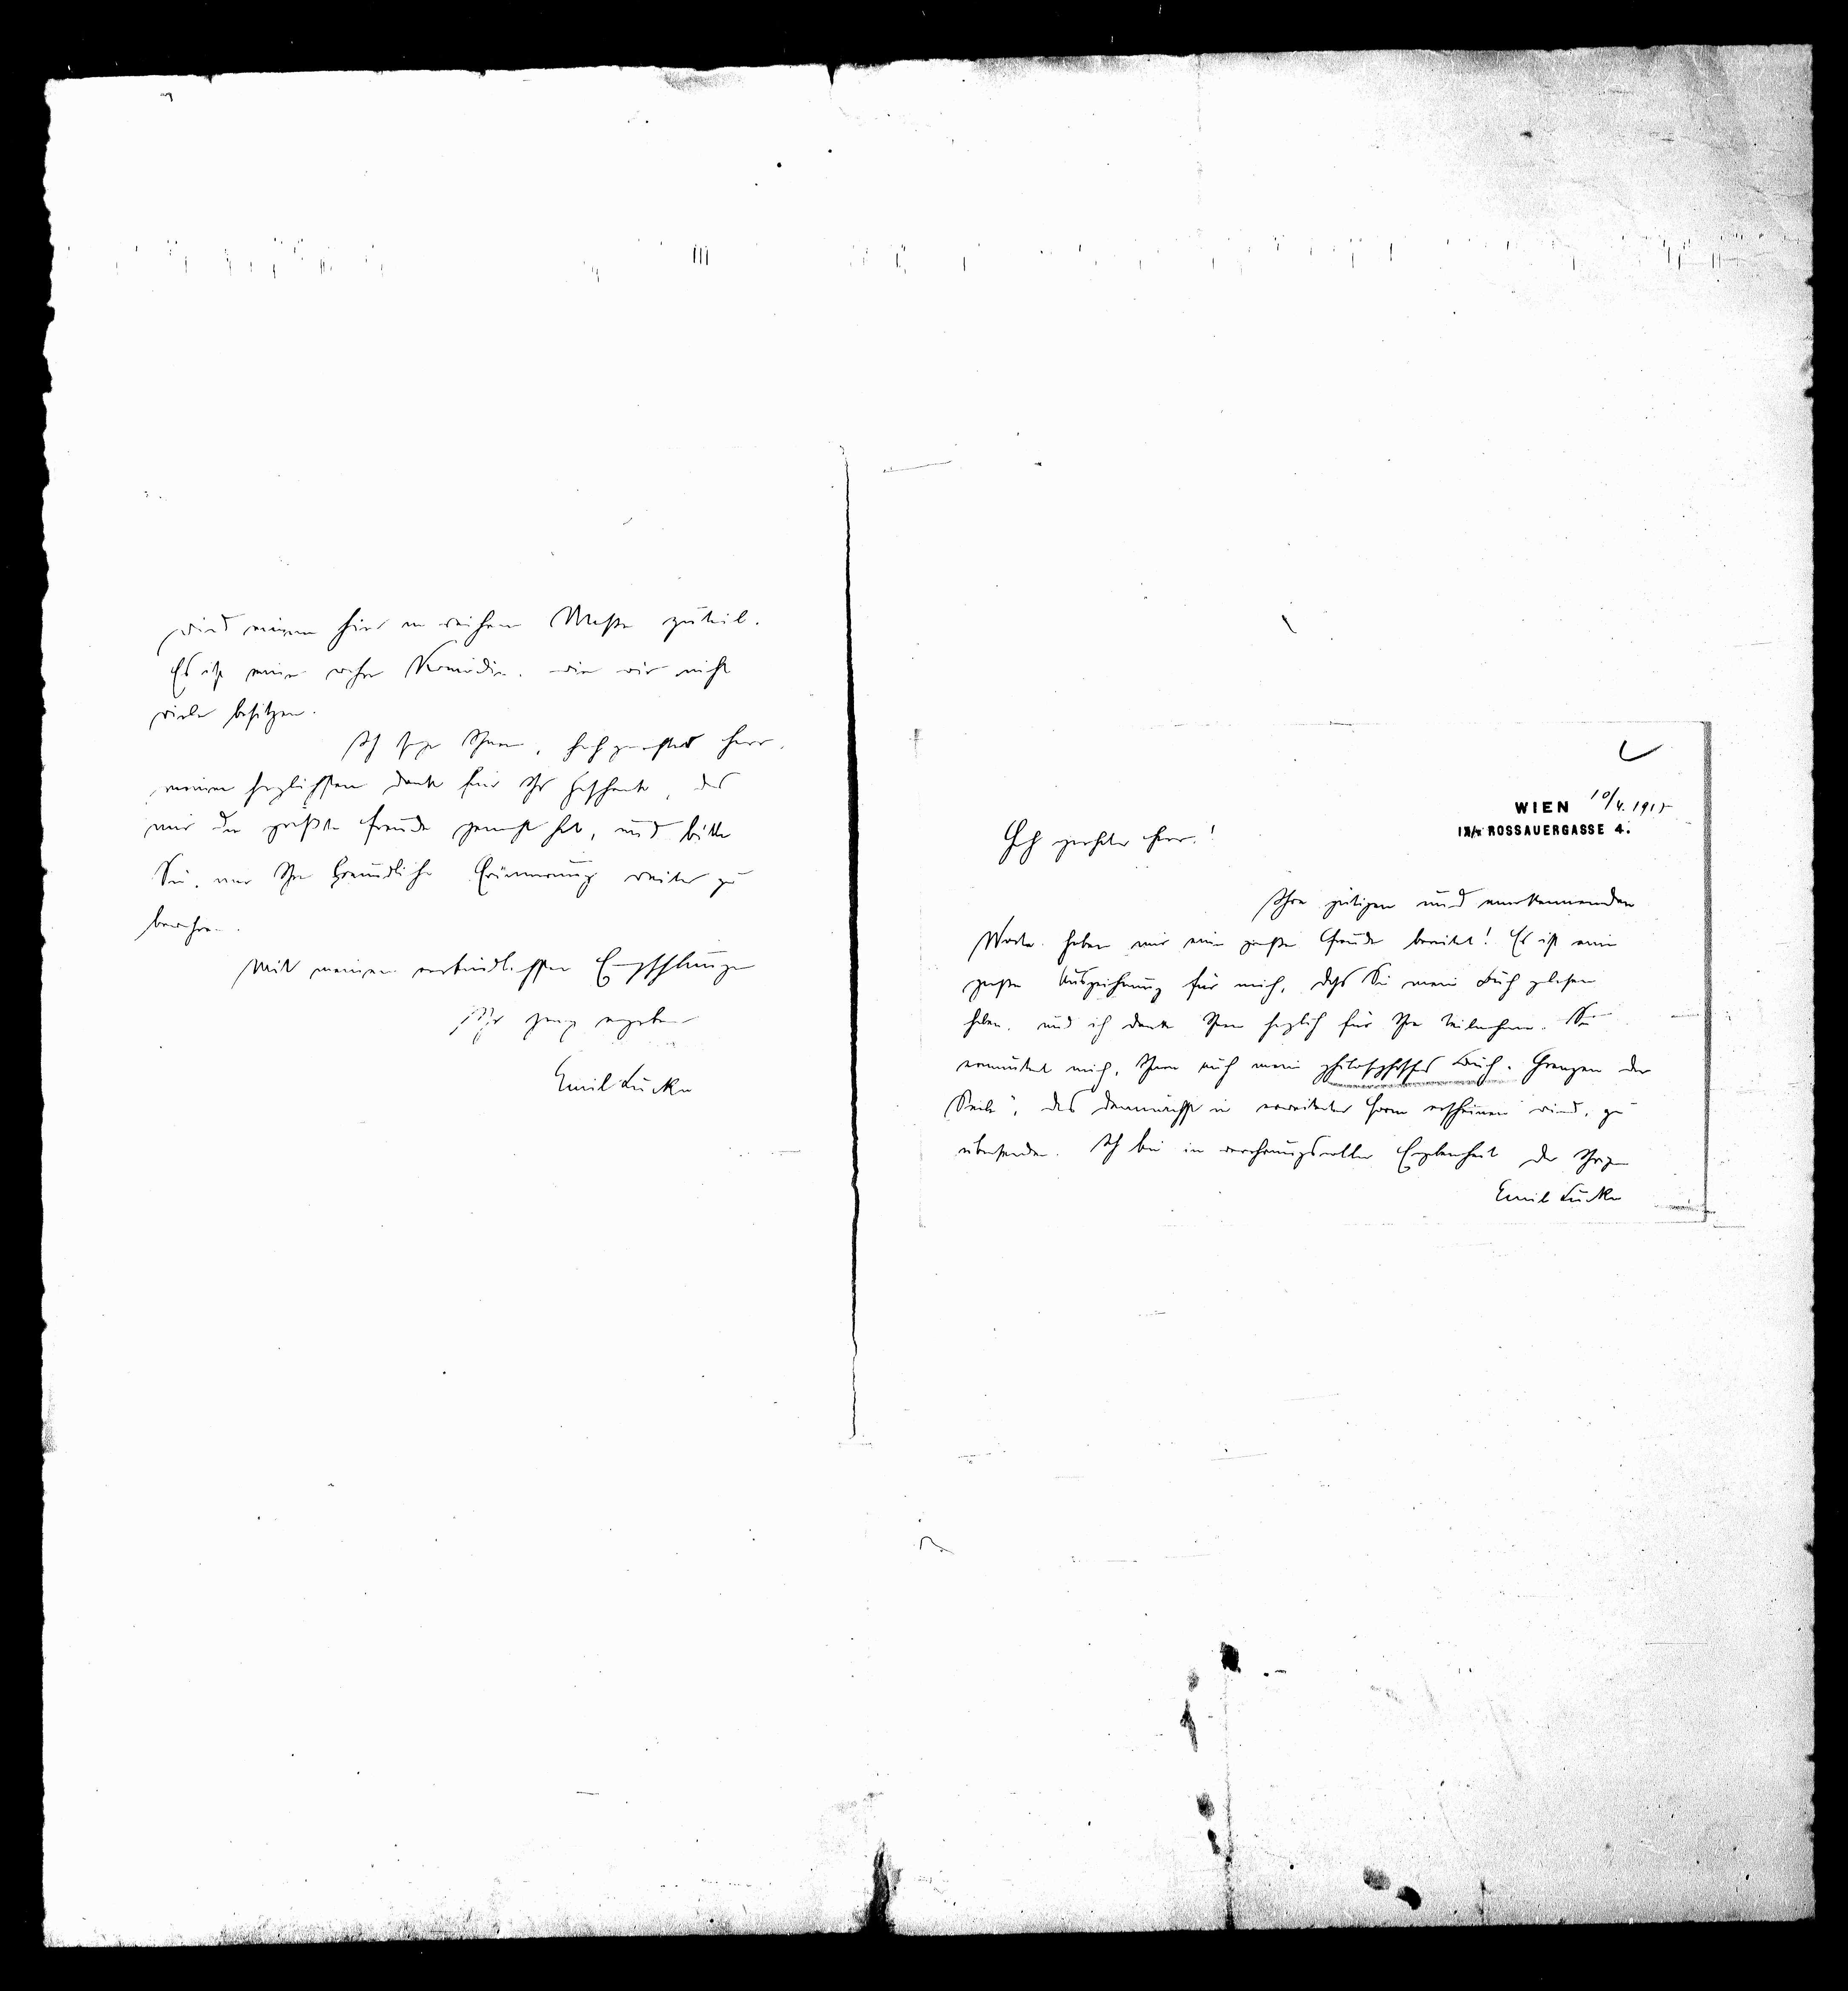 wird einem hier in reichem Maße zuteil.
Es ist eine wahre Komödie, wie wir nicht
viele besitzen.
Ich sage Ihnen, hochgeehrter Herr,
meinen herzlichsten Dank für Ihr Geschenk, das
mir die größte Freude gemacht hat, und bitte
Sie, mir Ihre freundliche Erinnerung weiter zu
bewahren.
Mit meinen verbindlichsten Empfehlungen
Ihr ganz ergebener
Emil Lucka
WIEN 10/4. 1915
ROSSAUERGASSE 4.
Hoch geehrter Herr!
Ihre gütigen und anerkennenden
Worte haben mir eine große Freude bereitet! Es ist eine
große Auszeichnung für mich, daß Sie mein Buch gelesen
haben, und ich danke Ihnen herzlich für Ihre Teilnahme. Sie
ermutet mich, Ihnen auch mein philosophisches Buch „Grenzen der
Seele", das demnächst in erweiterter Form erscheinen wird, zu
übersenden. Ich bin in verehrungsvoller Ergebenheit der Ihrige
Emil Lucka